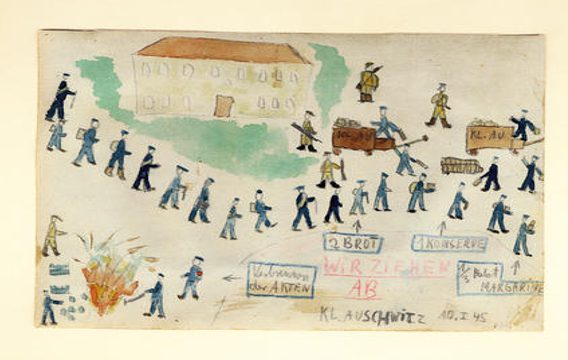 KL.AU
KL.AU.
2 BROT
1 KONSERVE
Verbrennen
der AKTEN
WIR ZIEHEN
AB
1/2 Paket
MARGARINE
KL. AUSCHWITZ 18.I 45